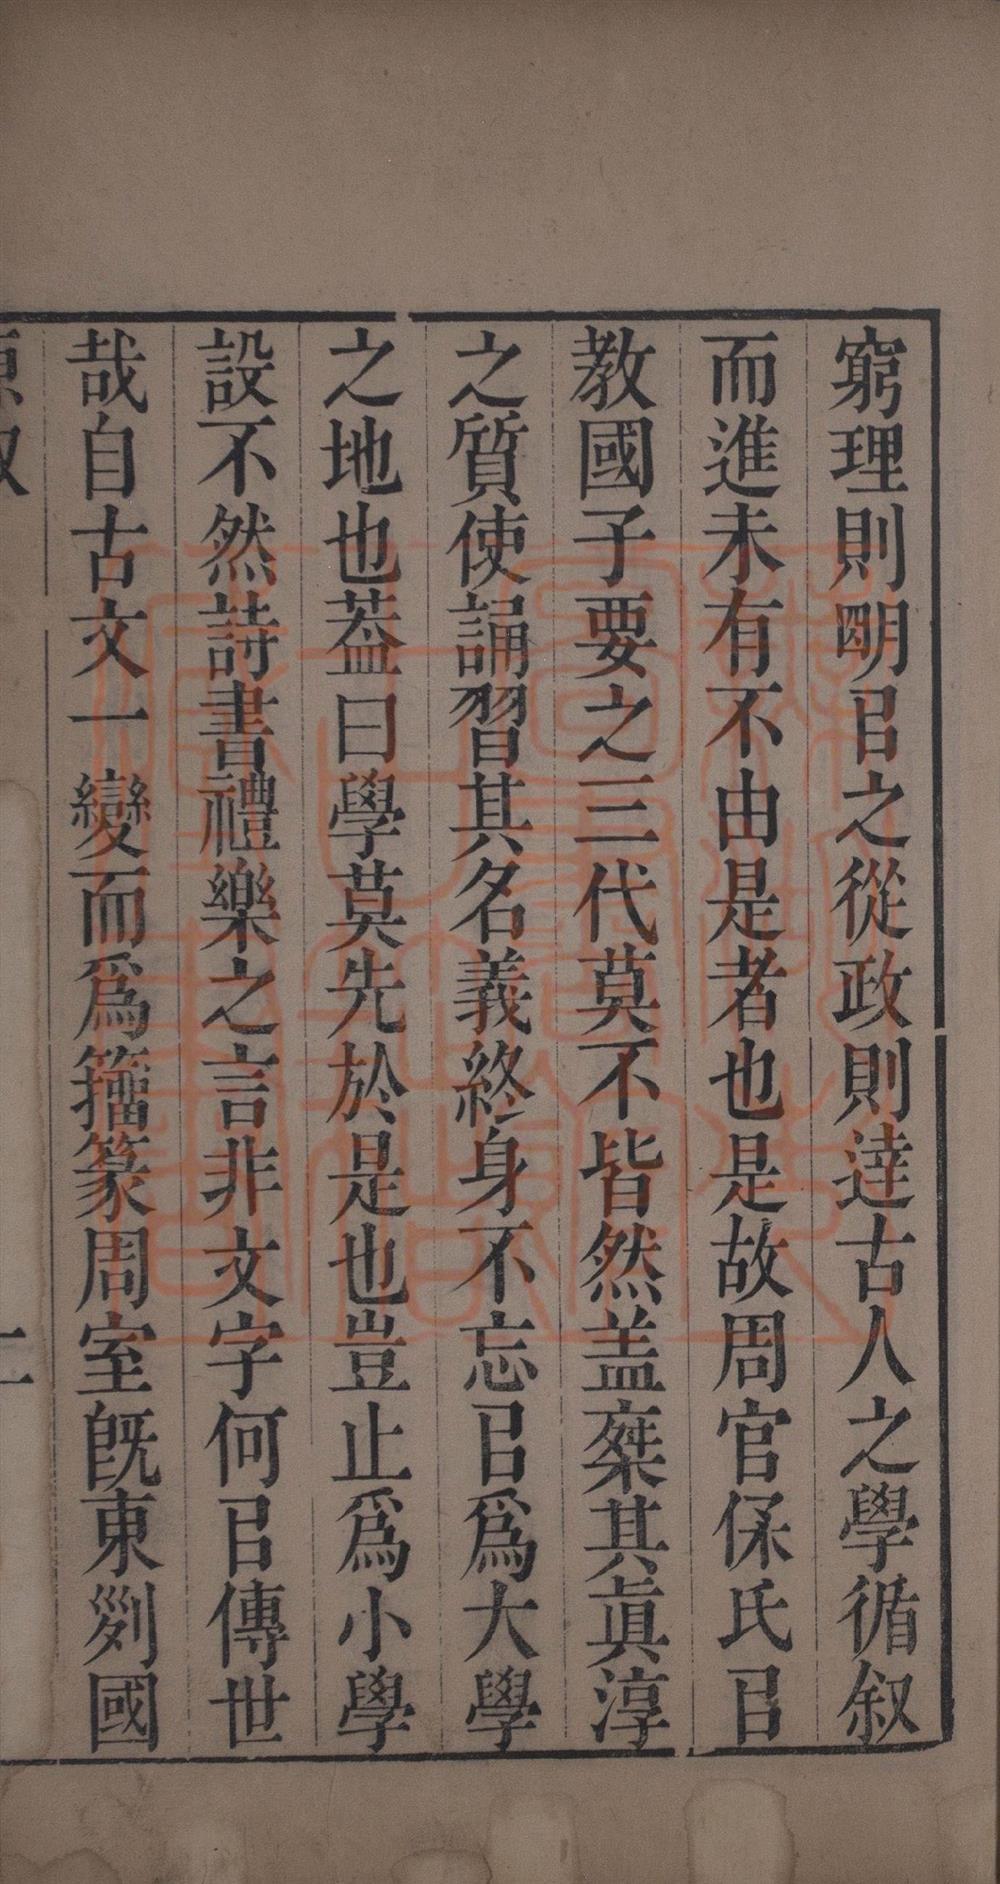 窮理則明㠯之從政則達古人之學循叙
而進未有不由是者也是故周官保氏㠯
教國子要之三代莫不皆然盖桒其眞淳
之質使誦習其名義終身不忘㠯爲大學
之地也葢曰學莫先於是也豈止爲小學
設不然詩書禮樂之言非文字何㠯傳世
哉自古文一變而爲籒篆周室旣東列國